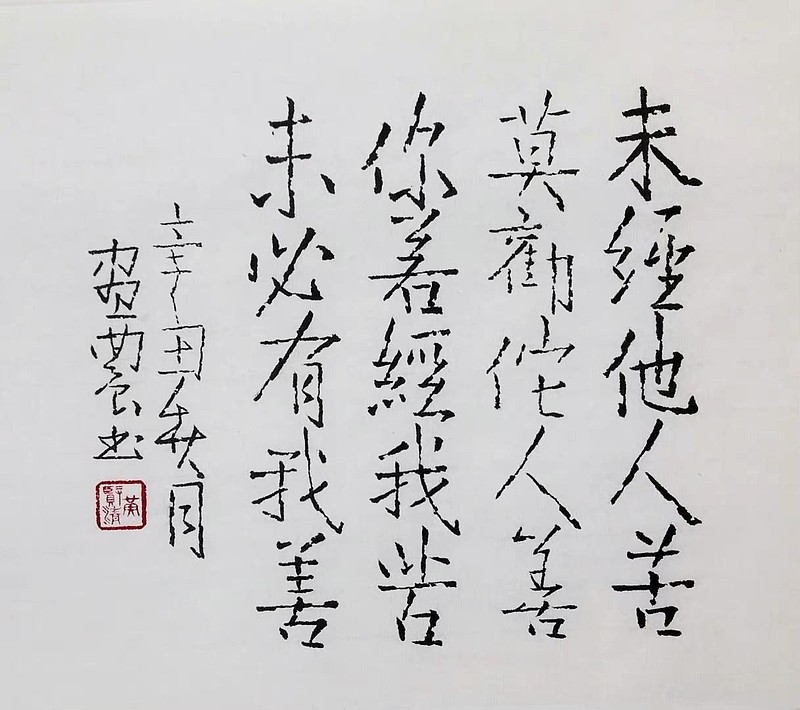 未經他人苦
莫勸他人善
你若經我苦
未必有我善
辛丑秋月
農書
黃賢清